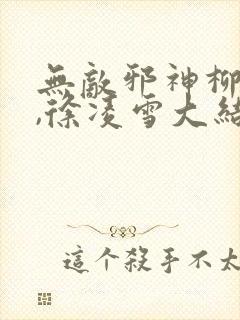 無敵邪神柳
,徐凌雪大結
這个殺手不太